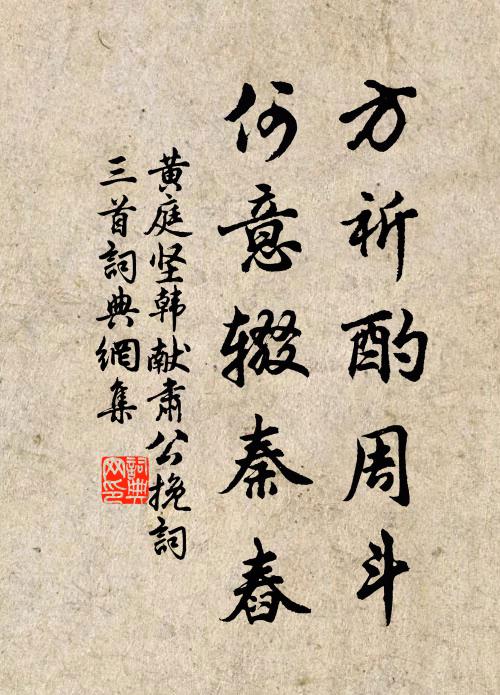 方祈酌周斗
何意辍秦舂
黄庭坚韩献肃公挽詞
三首詞典網集
詞典
网印